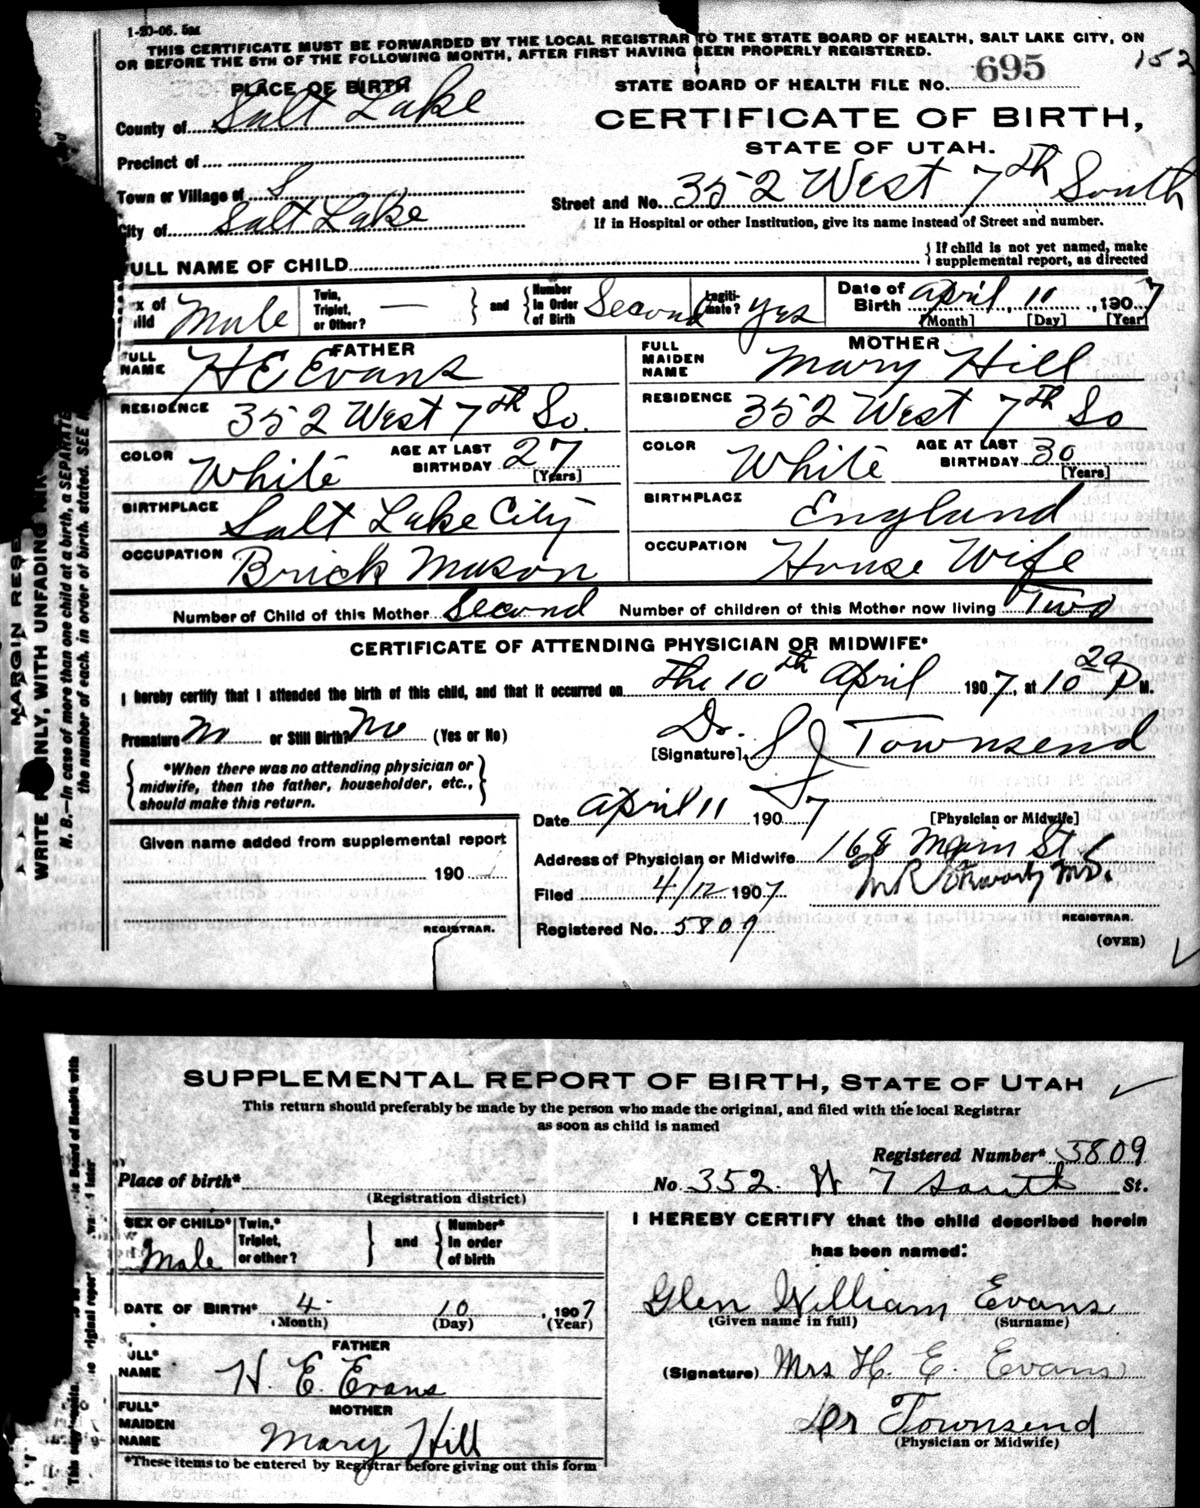 1-20-06. 5M
THIS CERTIFICATE MUST BE FORWARDED BY THE LOCAL REGISTRAR TO THE STATE BOARD OF HEALTH, SALT LAKE CITY, ON
OR BEFORE THE 5TH OF THE FOLLOWING MONTH, AFTER FIRST HAVING BEEN PROPERLY REGISTERED.
152
STATE BOARD OF HEALTH FILE NO. 695
PLACE OF BIRTH
County of Salt Lake
CERTIFICATE OF BIRTH,
STATE OF UTAH.
Precinct of
Town or Village of S
Street and No. 352 West 7th South
City of Salt Lake
If in Hospital or other Institution, give its name instead of Street and number.
ULL NAME OF CHILD
If child is not yet named, make
supplemental report, as directed
ex of
ild Male
Twin,
Triplet,
or Other? —
and
Number
In Order
of Birth Second
Legiti-
mate? Yes
Date of
Birth April 11, 1907
[Month] [Day] [Year]
FATHER
FULL
NAME H E Evans
MOTHER
FULL
MAIDEN
NAME Mary Hill
RESIDENCE 352 West 7th So.
RESIDENCE 352 West 7th So
COLOR White AGE AT LAST
BIRTHDAY 27
[Years]
COLOR White AGE AT LAST
BIRTHDAY 30
[Years]
BIRTHPLACE Salt Lake City
BIRTHPLACE England
OCCUPATION Brick Mason
OCCUPATION House Wife
Number of Child of this Mother Second Number of children of this Mother now living Two
CERTIFICATE OF ATTENDING PHYSICIAN OR MIDWIFE*
I hereby certify that I attended the birth of this child, and that it occurred on The 10th April 1907, at 10 20 P M.
Premature No or Still Birth? No (Yes or No)
[Signature] Dr. S J Townsend
*When there was no attending physician or
midwife, then the father, householder, etc.,
should make this return.
Date April 11 1907
[Physician or Midwife]
Given name added from supplemental report
190
REGISTRAR.
Address of Physician or Midwife 168 Main St.
Filed 4/12 1907
M.D.
REGISTRAR.
Registered No. 5809
(OVER)
MARGIN RESE
WRITE NLY, WITH UNFADING INK
N. B.—In case of more than one child at a birth, a SEPARATE
the number of each, in order of birth, stated. SEE
SUPPLEMENTAL REPORT OF BIRTH, STATE OF UTAH
This return should preferably be made by the person who made the original, and filed with the local Registrar
as soon as child is named
Registered Number* 5809
Place of birth* No. 352 W 7 South St.
(Registration district)
SEX OF CHILD*
Male
Twin,*
Triplet,
or other?
and
Number*
In order
of birth
I HEREBY CERTIFY that the child described herein
has been named:
DATE OF BIRTH* 4 10, 1907
(Month) (Day) (Year)
Glen William Evans
(Given name in full) (Surname)
FATHER
ULL*
NAME H. E. Evans
(Signature) Mrs H. E. Evans
MOTHER
FULL*
MAIDEN
NAME Mary Hill
Dr Townsend
(Physician or Midwife)
*These items to be entered by Registrar before giving out this form